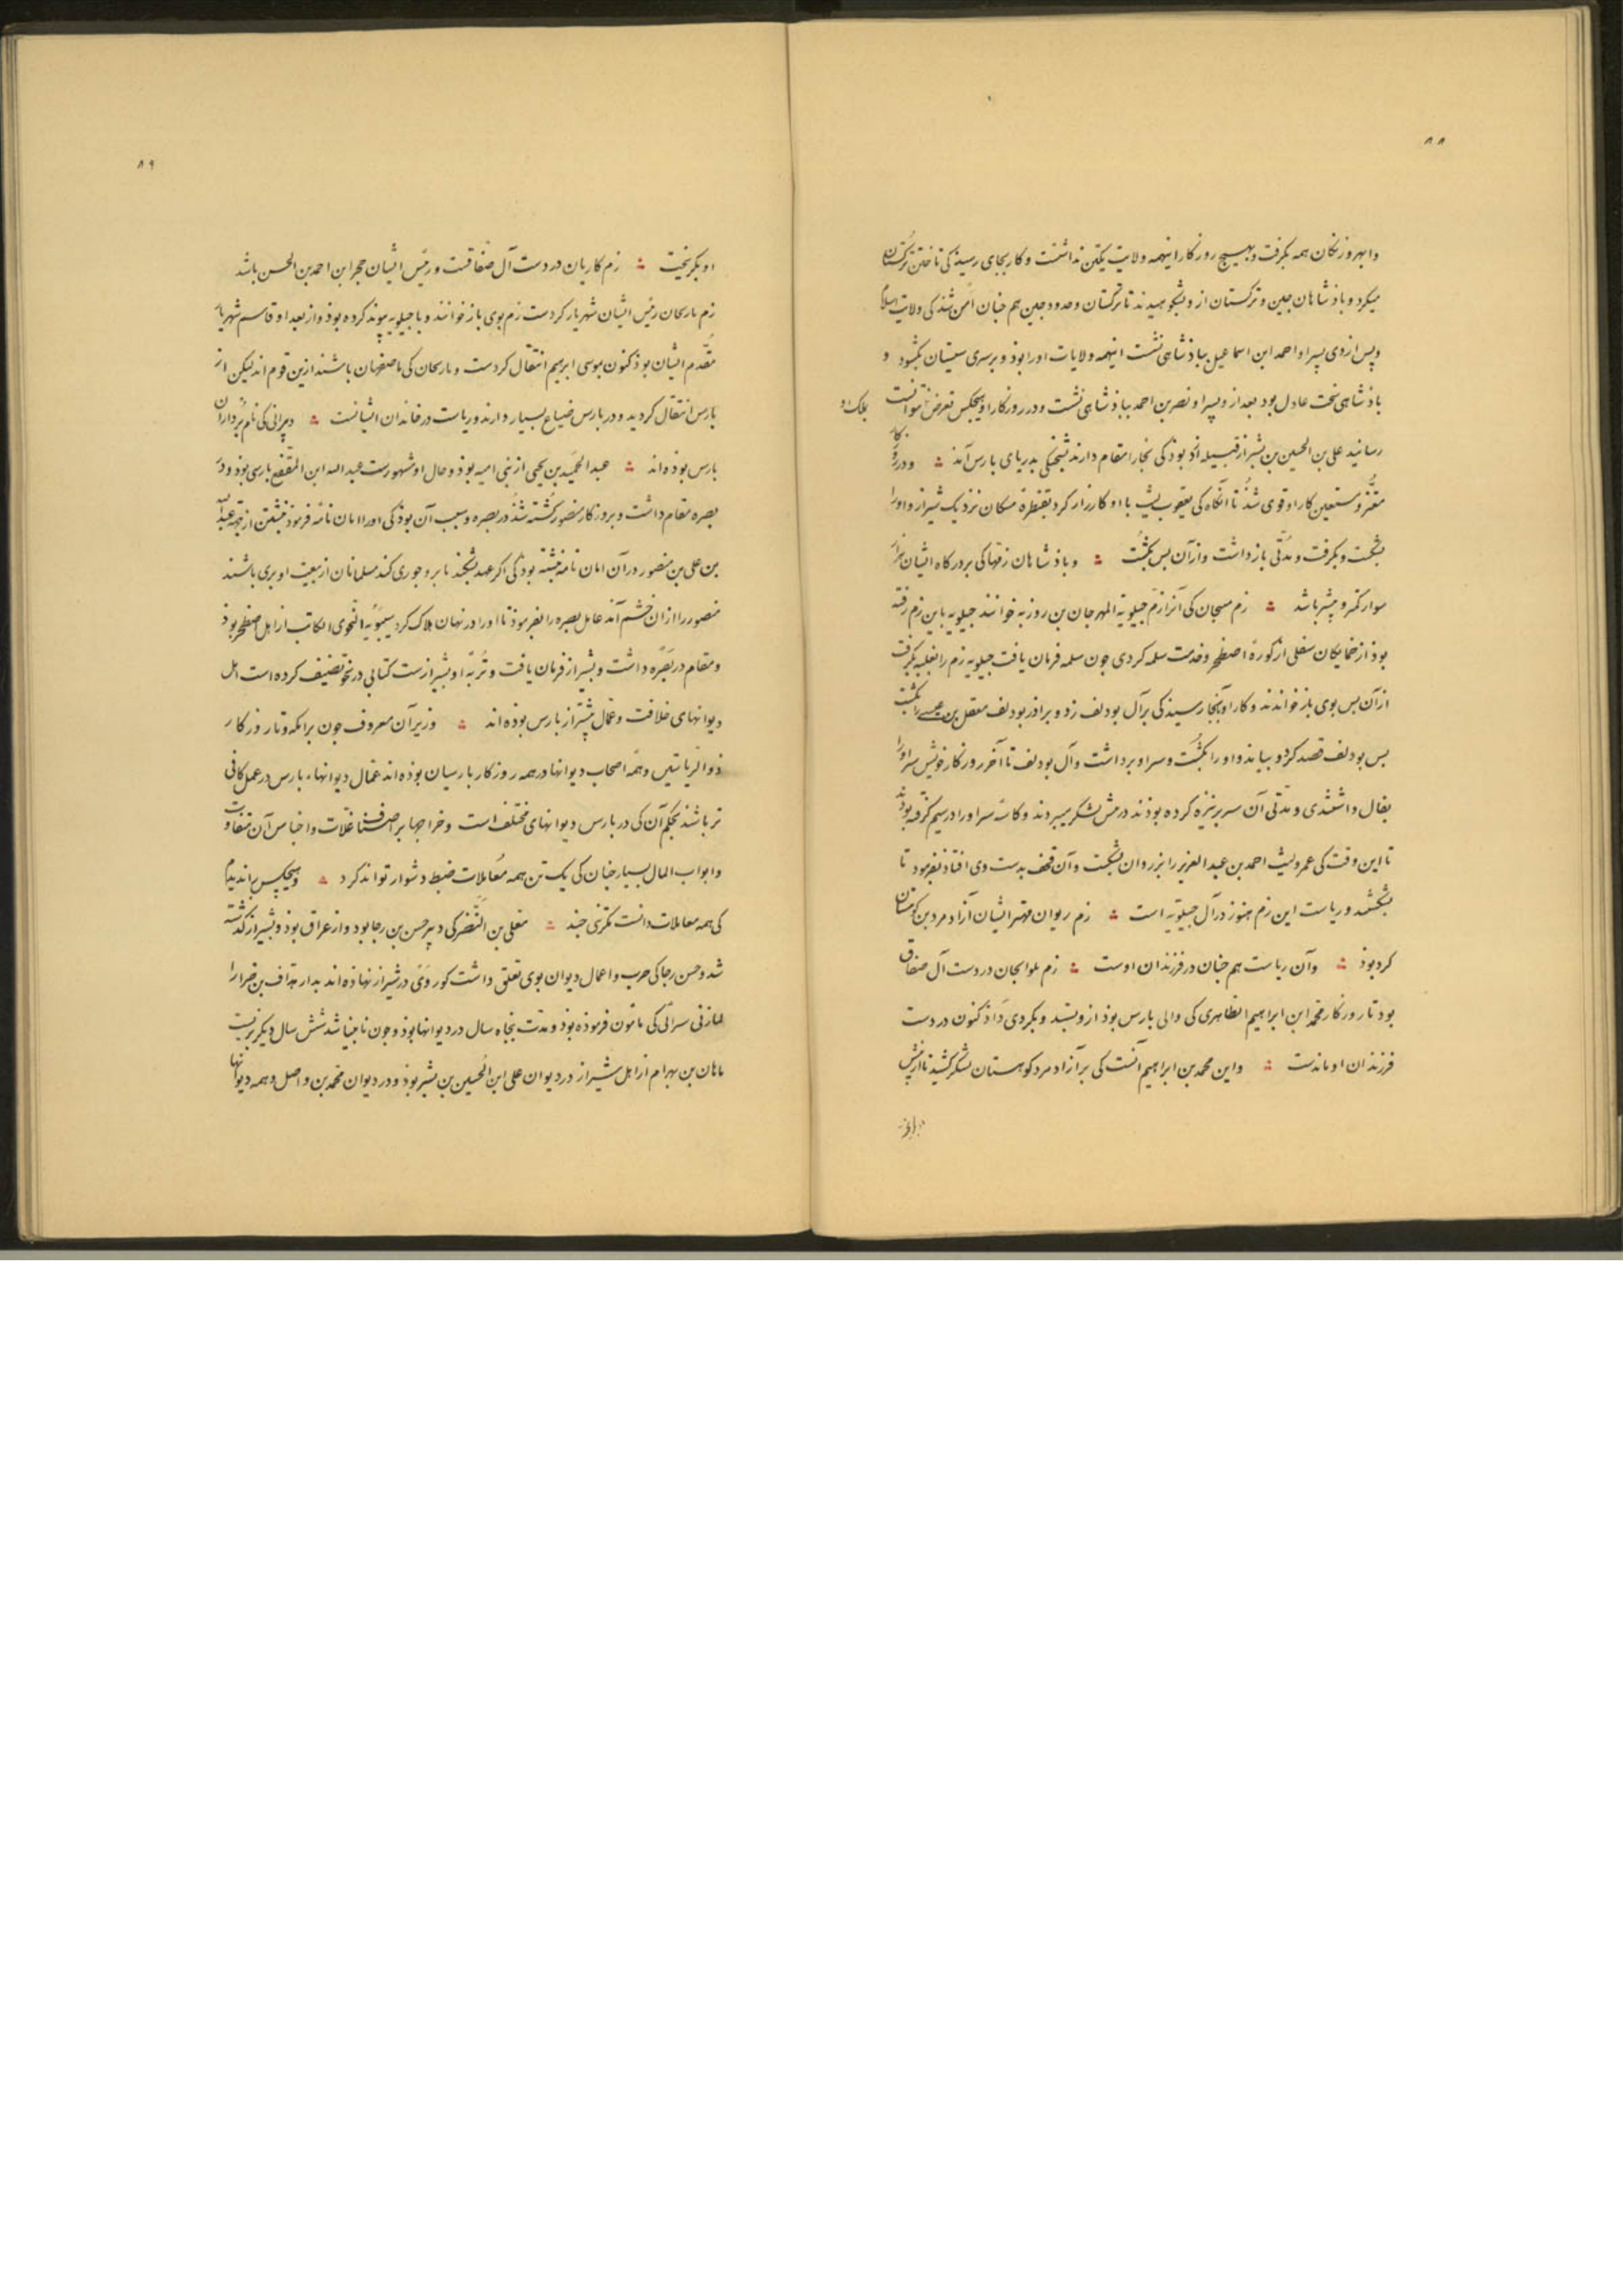 ۸۸
وابهر و زنکان همه بکرفت و بهیچ روزکار اینهمه ولایت یکتن نداشتست و کار بجای رسید کی تا ختن ترکستان
میکرد و باذشاهان چین و ترکستان ازو بشکوهیدند تا ترکستان و حدود چین هم جنان امن شد کی ولایت اسلام
و پس از وی پسر او احمد ابن اسماعیل بباذشاهی نشست اینهمه ولایات اورا بوذ و بر سری سیستان بکشود و
باذشاهی سخت عادل بود بعد ازو پسر او نصر بن احمد بباذشاهی نشست و در روزکار او هیچکس تعرض نتوانست
رسانید علی بن الحسین بن بشر از قبیله ازد بوذ کی بخارا مقام دارند بدریای بارس آمذ ؞ و در روزکار
معتز و مستعین کار او قوی شذ تا آنکاه کی یعقوب لیث با او کارزار کرد بقنطره سکان نزدیک شیراز و اورا
بشکست و بکرفت و مدتی بازداشت و از آن بس بکشت ؞ و باذشاهان زمها کی بر درکاه ایشان هزار
سوار کمتر و بیشتر باشد ؞ زم سیجان کی آنرا زم جیلویه المهرجان بن روزبه خوانند جیلویه باین زم رفته
بوذ از خمایکان سفلی از کوره اصطخر و خدمت سلمه کردی جون سلمه فرمان یافت جیلویه زم را بغلبه بکرفت
از آن بس بوی باز خواندند و کار او بآنجا رسید کی بر آل بودلف زد و برادر بودلف معقل بن عیسی را بکشت
بس بودلف قصد کرد و بیامد و اورا بکشت و سر او برداشت و آل بودلف تا آخر روزکار خویش سر اورا
بفال داشتندی و مدتی آن سر بر نیزه کرده بوذند در پیش لشکر میبردند و کاسه سر اورا در سیم کرفته بوذند
تا این وقت کی عمرو لیث احمد بن عبدالعزیز را بزرقان بشکست و آن قحف بدست وی افتاذ بفرمود تا
بشکستند و ریاست این زم هنوز در آل جیلویه است ؞ زم ریوان مهتر ایشان آزادمرد بن کوهستان
کرد بوذ ؞ و آن ریاست هم جنان در فرزندان اوست ؞ زم لوالجان در دست آل صفاق
بود تا روزکار محمد ابن ابراهیم الطاهری کی والی بارس بوذ ازو بستد و بکردی داذ کنون در دست
فرزندان او ماندست ؞ و این محمد بن ابراهیم آنست کی بر آزادمرد کوهستان لشکر کشید تا از پیش
۸۹
او بکریخت ؞ زم کاریان در دست آل صفاقست و رئیس ایشان حجر ابن احمد بن الحسن باشد
زم بازنجان رئیس ایشان شهریار کردست زم بوی باز خوانند و با جیلویه پیوند کرده بوذ و از بعد او قاسم شهریار
مقدم ایشان بوذ کنون بموسی ابرهیم انتقال کردست و بازنجان کی باصفهان باشند ازین قوم اند لیکن از
بارس انتقال کردید و در بارس ضیاع بسیار دارند و ریاست در خاندان ایشانست ؞ دبیرانی کی نام برداران
بارس بوذه اند ؞ عبد الحمید بن یحیی از بنی امیه بوذ و حال او مشهورست عبد الله ابن المقفع بارسی بوذ و در
بصره مقام داشت و بروزکار منصور کشته شذ در بصره و سبب آن بوذ کی اورا امان نامه فرموذ نبشتن از جهت عبدالله
بن علی بن منصور در آن امان نامه نبشته بوذ کی اکر عهد بشکند یا برو جوری کند مسلمانان از بیعت او بری باشند
منصور را از آن خشم آمذ عامل بصره را بفرموذ تا اورا در نهان هلاک کرد سیبویه النحوی الکاتب از اهل اصطخر بوذ
و مقام در بصره داشت و بشیراز فرمان یافت و تربة او بشیرازست کتابی در نحو تصنیف کرده است اهل
دیوانهای خلافت و عمال بیشتر از بارس بوذه اند ؞ وزیران معروف جون برامکه و تا روزکار
ذوالریاستین و همه اصحاب دیوانها در همه روزکار بارسیان بوذه اند عمال دیوانهاء بارس در عمل کافی
تر باشند بحکم آن کی در بارس دیوانهای مختلف است و خراجها بر اصناف غلات و اجناس آن متفاوت
و ابواب المال بسیار جنان کی یک تن همه معاملات ضبط دشوار تواند کرد ؞ و هیچکس را ندیدم
کی همه معاملات دانست مکر تنی جند ؞ معلی بن النضر کی دبیر حسن بن رجا بود و از عراق بوذ و بشیراز کذشته
شد و حسن رجا کی حرب و اعمال دیوان بوی تعلق داشت کور وی در شیراز نهاذه اند بدار هداف بن ضرار
المازنی سرائی کی مامون فرموذه بوذ و مدت پنجاه سال در دیوانها بوذ و جون نابینا شد شش سال دیکر بزیست
ماهان بن بهرام از اهل شیراز در دیوان علی ابن الحسین بن بشر بوذ و در دیوان محمد بن واصل و همه دیوانها